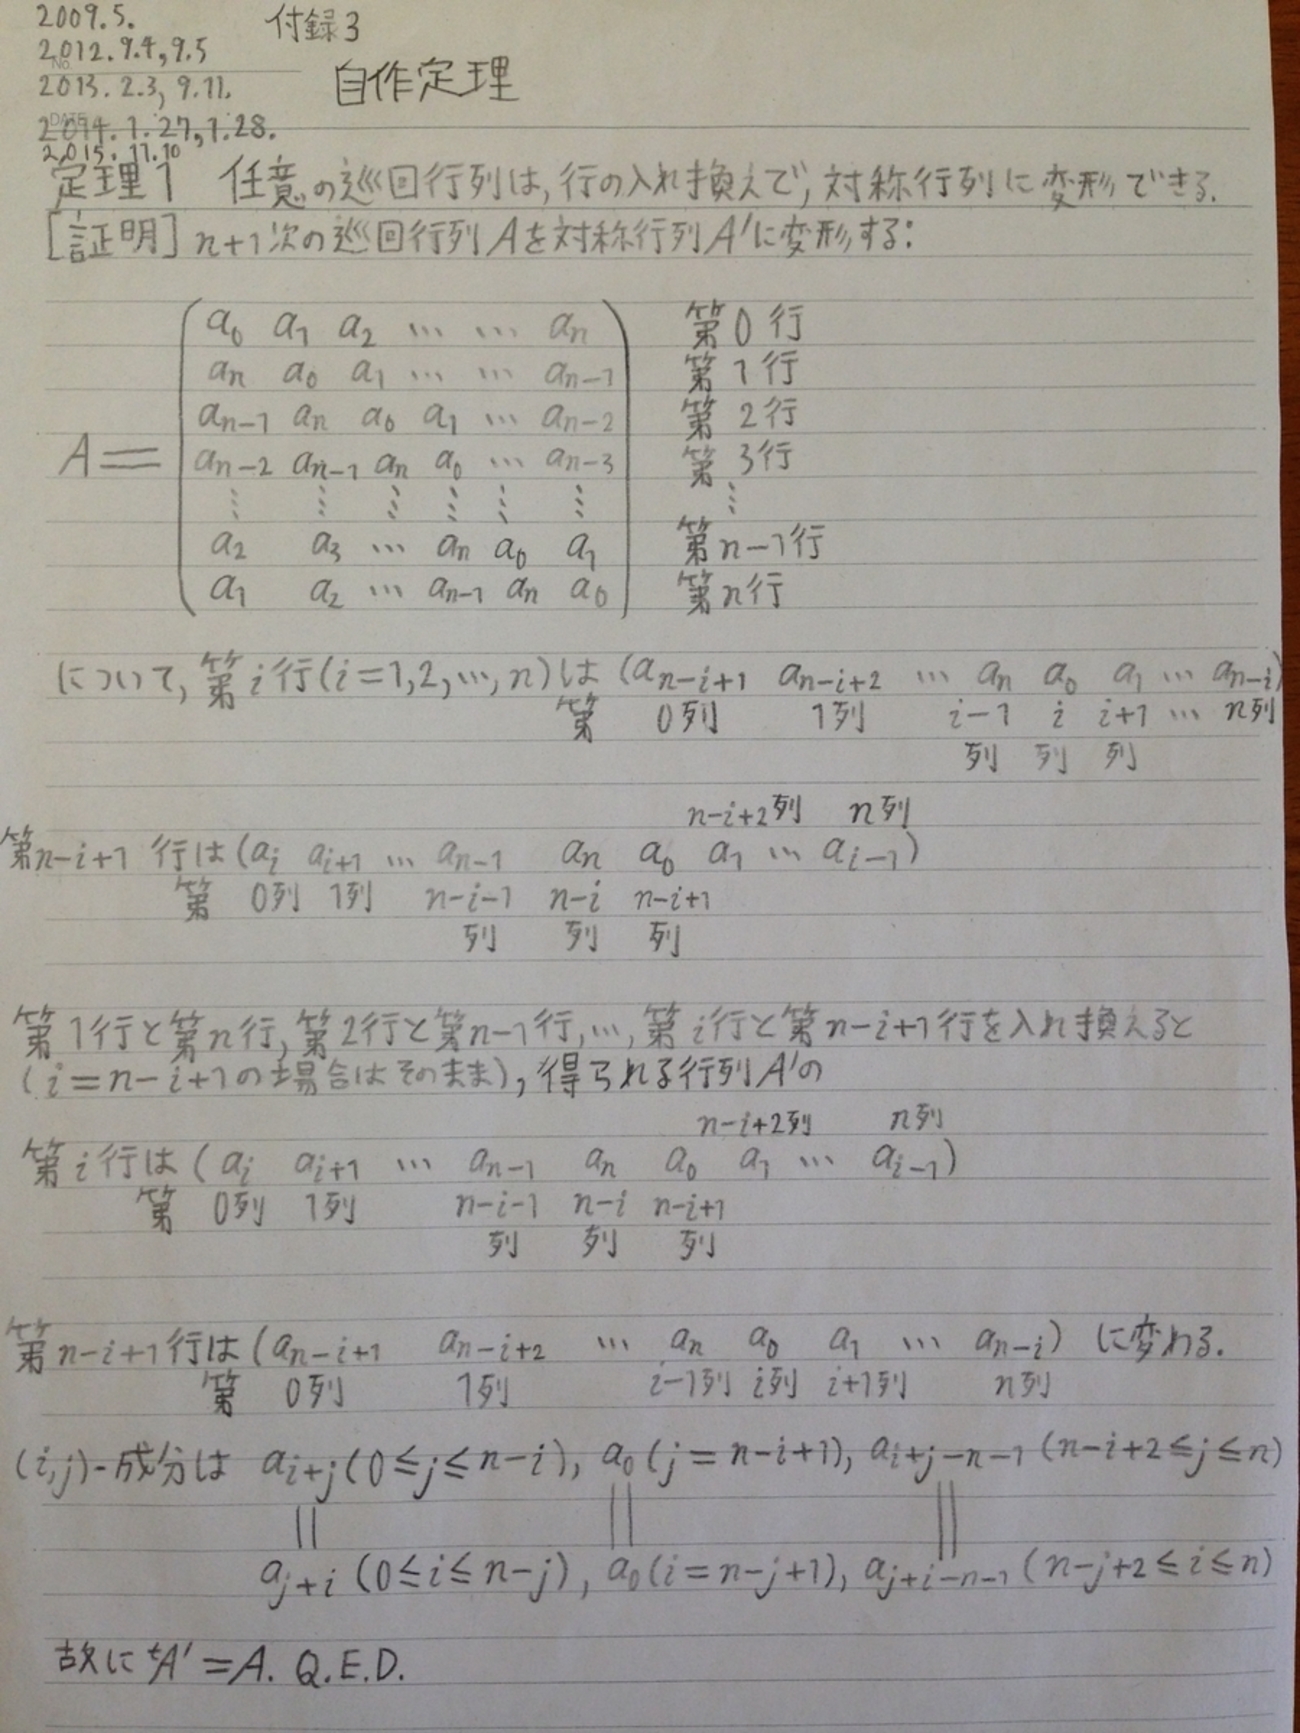 2009.5. 付録3
2012.9.4,9.5
No.
自作定理
2013.2.3, 9.11.
DATE
2014.1.27,1.28.
2015.11.10
定理1 任意の巡回行列は,行の入れ換えで,対称行列に変形できる.
[証明] n+1次の巡回行列Aを対称行列A'に変形する:
a₀ a₁ a₂ … … aₙ 第0行
aₙ a₀ a₁ … … aₙ₋₁ 第1行
aₙ₋₁ aₙ a₀ a₁ … aₙ₋₂ 第2行
A= aₙ₋₂ aₙ₋₁ aₙ a₀ … aₙ₋₃ 第3行
⋮ ⋮ ⋮ ⋮ ⋮ ⋮ ⋮
a₂ a₃ … aₙ a₀ a₁ 第n-1行
a₁ a₂ … aₙ₋₁ aₙ a₀ 第n行
について,第i行(i=1,2,…,n)は (a_{n-i+1} a_{n-i+2} … aₙ a₀ a₁ … a_{n-i})
第 0列 1列 i-1 i i+1 … n列
列 列 列
n-i+2列 n列
第n-i+1 行は(a_i a_{i+1} … a_{n-1} aₙ a₀ a₁ … a_{i-1})
第 0列 1列 n-i-1 n-i n-i+1
列 列 列
第1行と第n行,第2行と第n-1行,…,第i行と第n-i+1行を入れ換えると
(i=n-i+1の場合はそのまま),得られる行列A'の
n-i+2列 n列
第i行は(a_i a_{i+1} … a_{n-1} aₙ a₀ a₁ … a_{i-1})
第 0列 1列 n-i-1 n-i n-i+1
列 列 列
第n-i+1行は(a_{n-i+1} a_{n-i+2} … aₙ a₀ a₁ … a_{n-i}) に変わる.
第 0列 1列 i-1列 i列 i+1列 n列
(i,j)-成分は a_{i+j}(0≦j≦n-i), a₀(j=n-i+1), a_{i+j-n-1}(n-i+2≦j≦n)
|| || ||
a_{j+i}(0≦i≦n-j), a₀(i=n-j+1), a_{j+i-n-1}(n-j+2≦i≦n)
故に ᵗA'=A. Q.E.D.